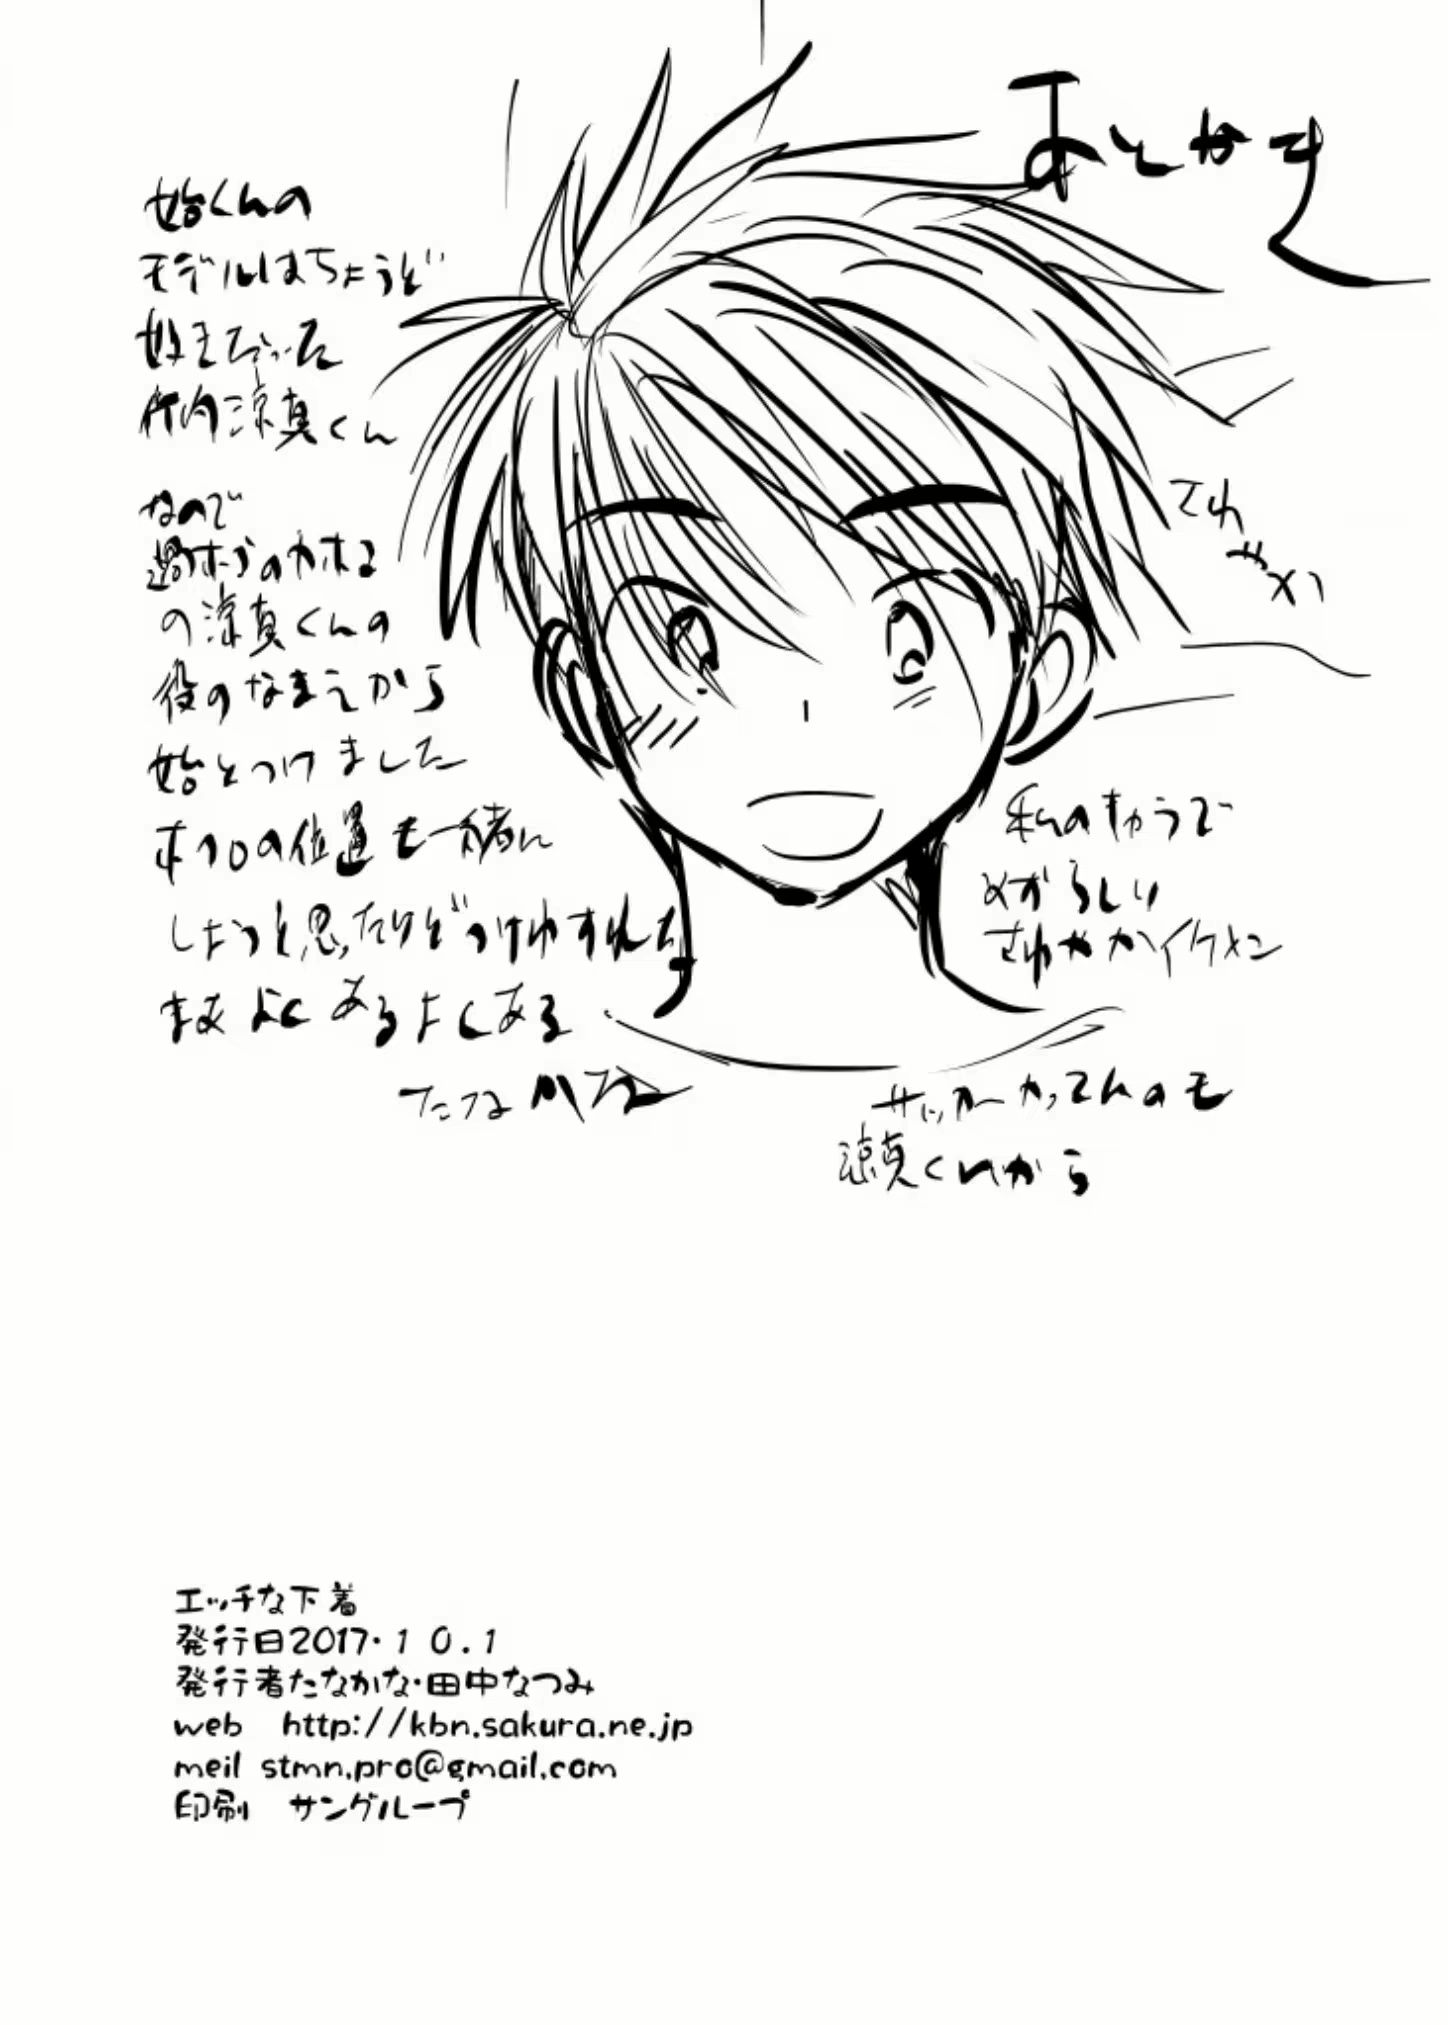 あとがき
始くんの
モデルはちょうど
好きだった
竹内涼真くん
なので
過ホゴのカホコ
の涼真くんの
役のなまえから
始とつけました
ホクロの位置も一緒に
しようと思ったけどつけわすれた
まあよくあるよくある
たなかな
さわ
やか
私のキャラで
めずらしい
さわやかイケメン
サッカーやってんのも
涼真くんから
エッチな下着
発行日2017・10.1
発行者たなかな・田中なつみ
web http://kbn.sakura.ne.jp
meil stmn.pro@gmail.com
印刷 サングループ